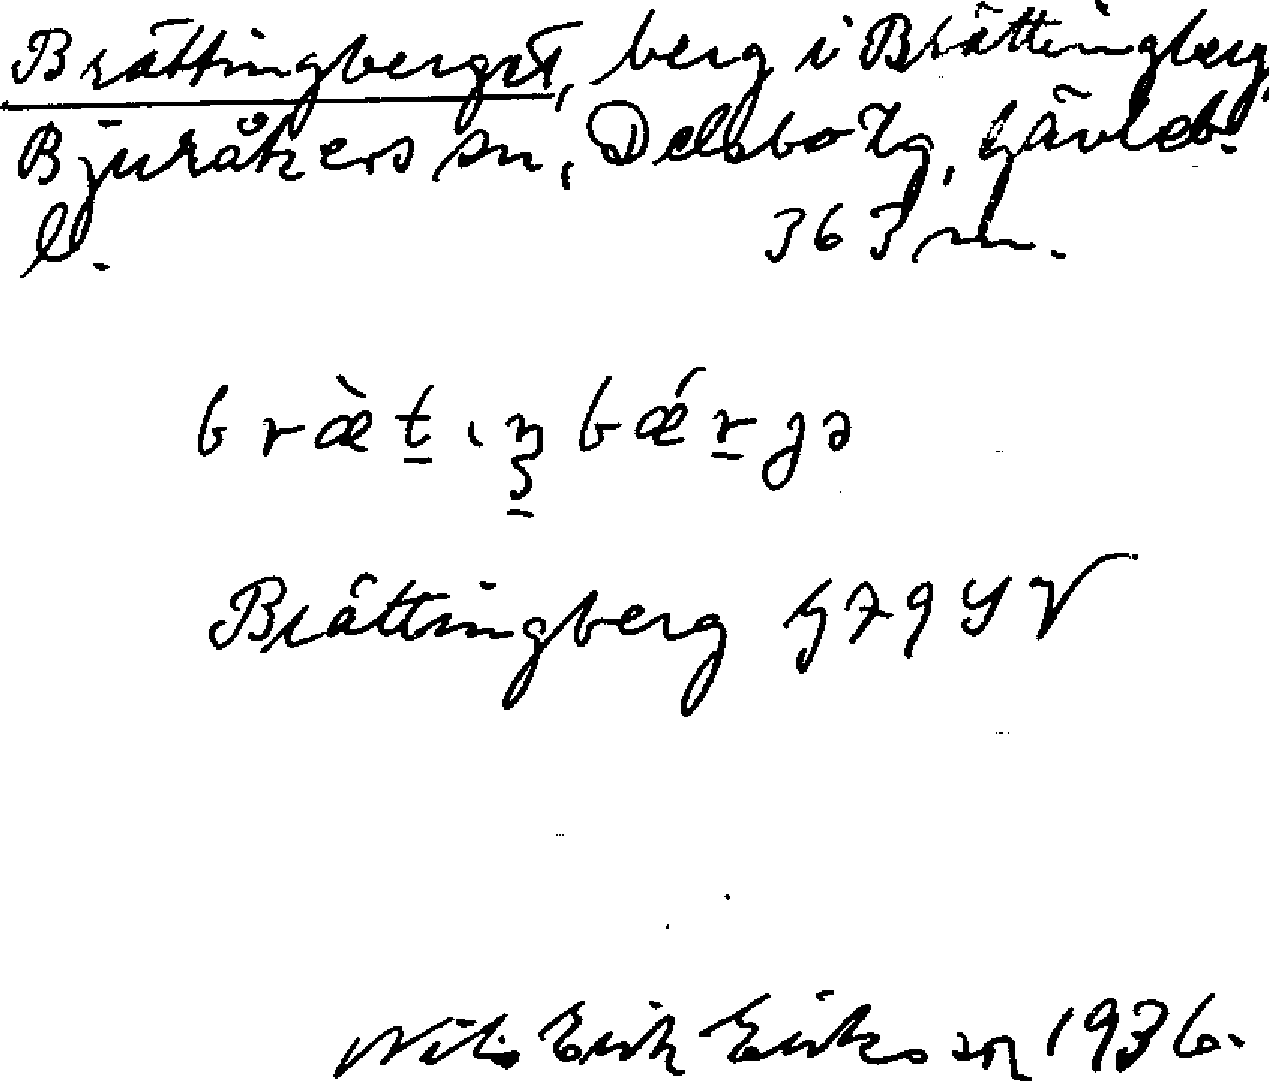 Brättingberget, berg i Brättingberg,
Bjuråkers sn, Delsbo tg, Gävleb.
l. 363 m.
bræ̀t̠ıŋ̠bǽr̠gə
Brättingberg G79
Nils Erik Eriksson 1936.